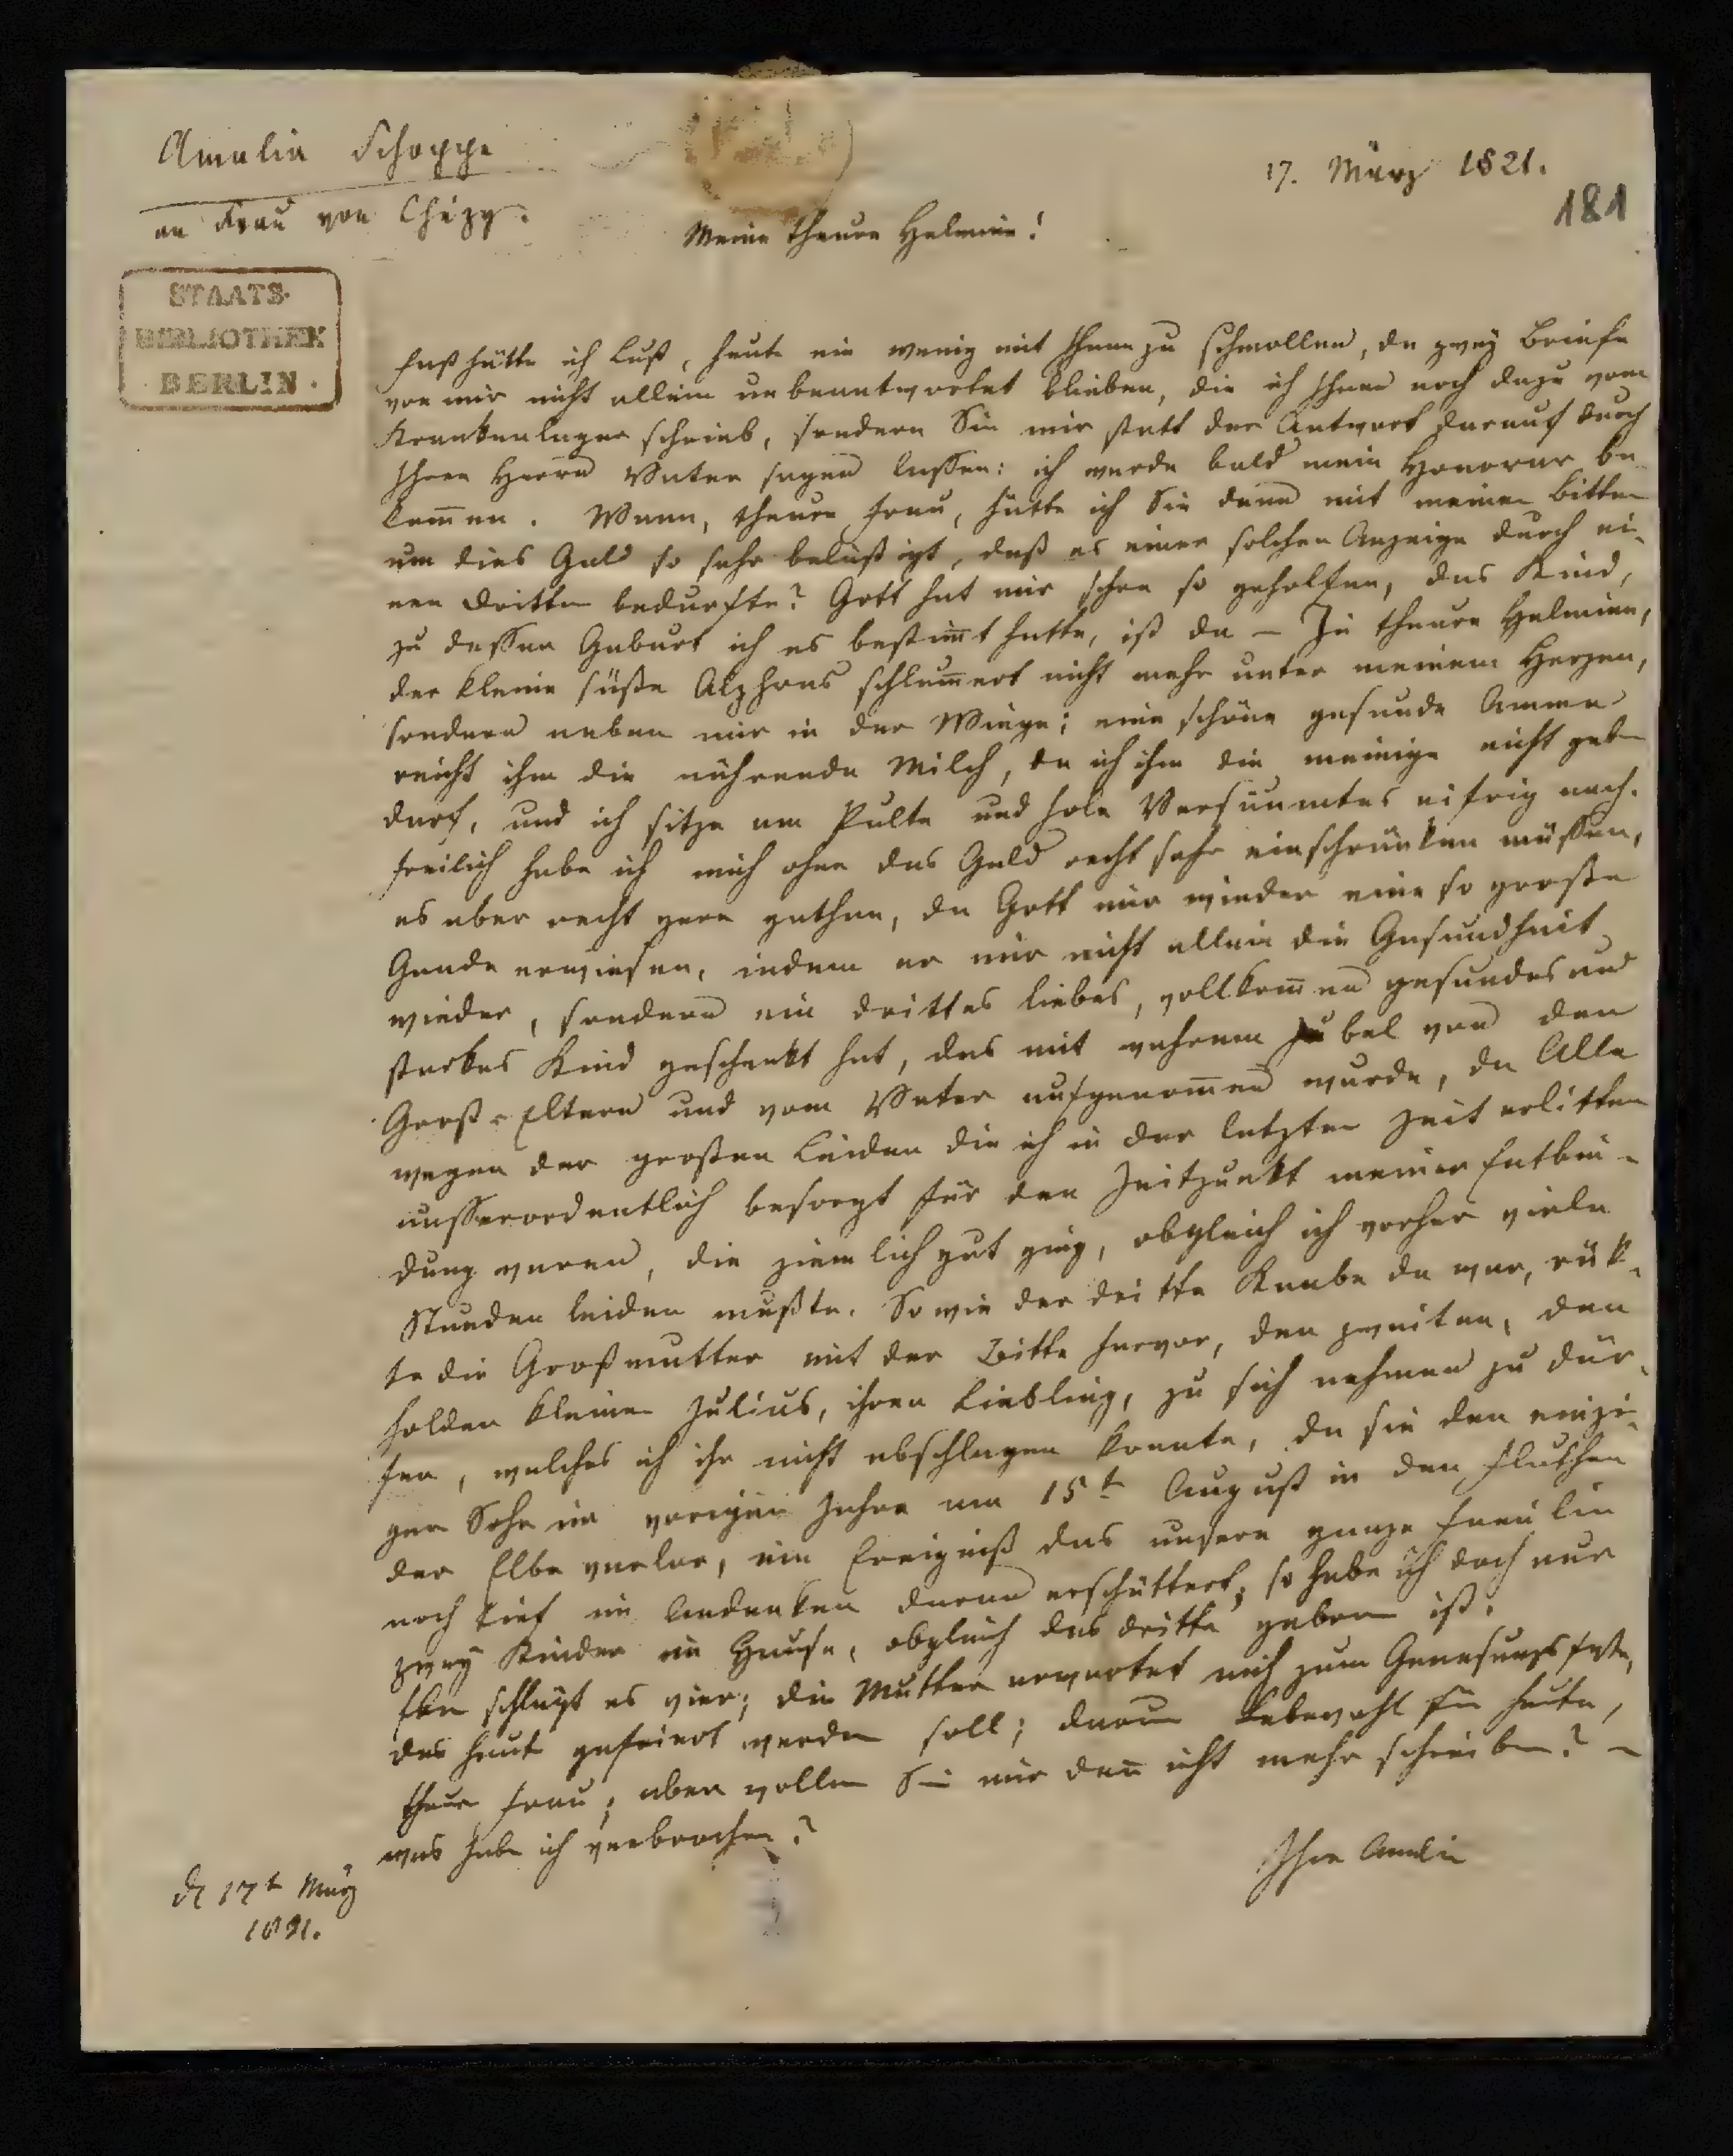 Amalia Schoppe
an Frau von Chézy.
17. März 1821.
181
Meine theure Helmine!
STAATS-
BIBLIOTHEK
BERLIN.
Fast hätte ich Lust, heute ein wenig mit Ihnen zu schmollen, da zwey Briefe
von mir nicht allein unbeantwortet blieben, die ich Ihnen noch dazu vom
Krankenlager schrieb, sondern Sie mir statt der Antwort darauf durch
Ihren Herrn Vater sagen lassen: ich werde bald mein Honorar be
kom̅en. Wann, theure Frau, hätte ich Sie denn mit meinen Bitten
um dies Geld so sehr belästigt, daß es einer solchen Anzeige durch ei-
nen Dritten bedurfte? Gott hat mir schon so geholfen, das Kind,
zu dessen Geburt ich es bestim̅t hatte, ist da – Ja theure Helmine,
der kleine süße Alphons schlum̅ert nicht mehr unter meinem Herzen,
sondern neben mir in der Wiege; eine schöne gesunde Amme
reicht ihm die nährende Milch, da ich ihm die meinige nicht geben
darf, und ich sitze am Pulte und hole Versäumtes eifrig nach.
Freilich habe ich mich ohne das Geld recht sehr einschränken müssen,
es aber recht gern gethan, da Gott mir wieder eine so große
Gnade erwiesen, indem er mir nicht allein die Gesundheit
wieder, sondern ein drittes liebes, vollkom̅en gesundes und
starkes Kind geschenkt hat, das mit wahrem Jubel von den
Groß-Eltern und vom Vater aufgenom̅en wurde, da Alle
wegen der großen Leiden die ich in der letzten Zeit erlitten
ausserordentlich besorgt für den Zeitpunkt meiner Entbin-
dung waren, die ziemlich gut ging, obgleich ich vorher viele
Stunden leiden mußte. So wie der dritte Knabe da war, rük-
te die Großmutter mit der Bitte hervor, den zweiten, den
holden kleinen Julius, ihren Liebling, zu sich nehmen zu dür-
fen, welches ich ihr nicht abschlagen konnte, da sie den einzi-
gen Sohn im vorigen Jahre am 15t August in den Fluthen
der Elbe verlor, ein Ereigniß das unsere ganze Familie
noch tief im Andenken daran erschüttert; so habe ich doch nur
zwey Kinder im Hause, obgleich das dritte geboren ist.
Eben schlägt es vier; die Mutter erwartet mich zum Genesungsfeste,
das heut gefeiert werden soll; darum Lebewohl für heute,
theure Frau; aber wollen Sie mir den̅ nicht mehr schreiben? –
was habe ich verbrochen?
Ihre Amalie
d 17t März
1821.